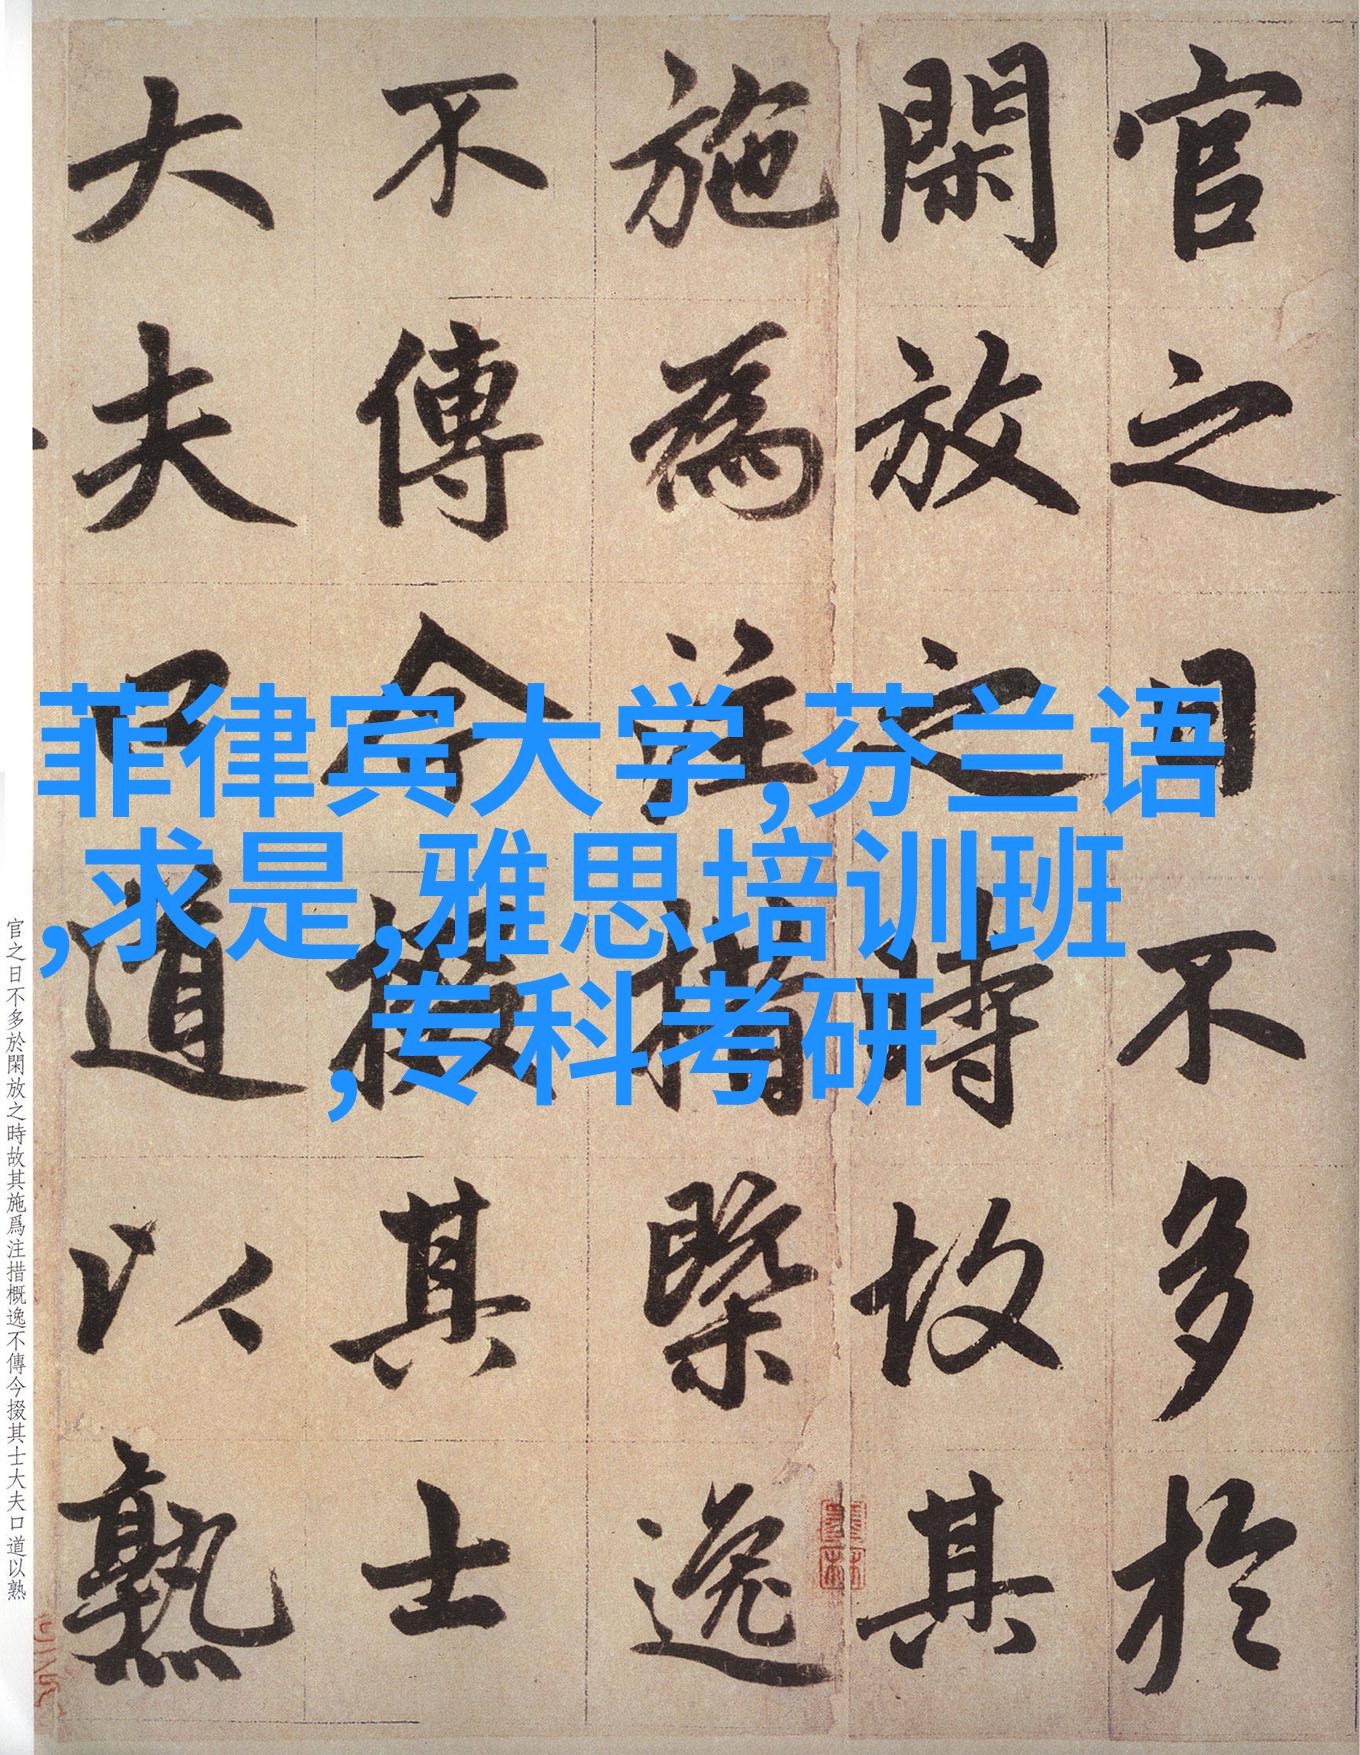 官之日不多於
閑放之時故其
施為注措槩逸
不傳今掇其士
大夫口道以熟
菲律宾大学,芬兰语
,求是,雅思培训班
,专科考研
官之日不多於閑放之時故其施爲注措概逸不傳今掇其士大夫口道以熟